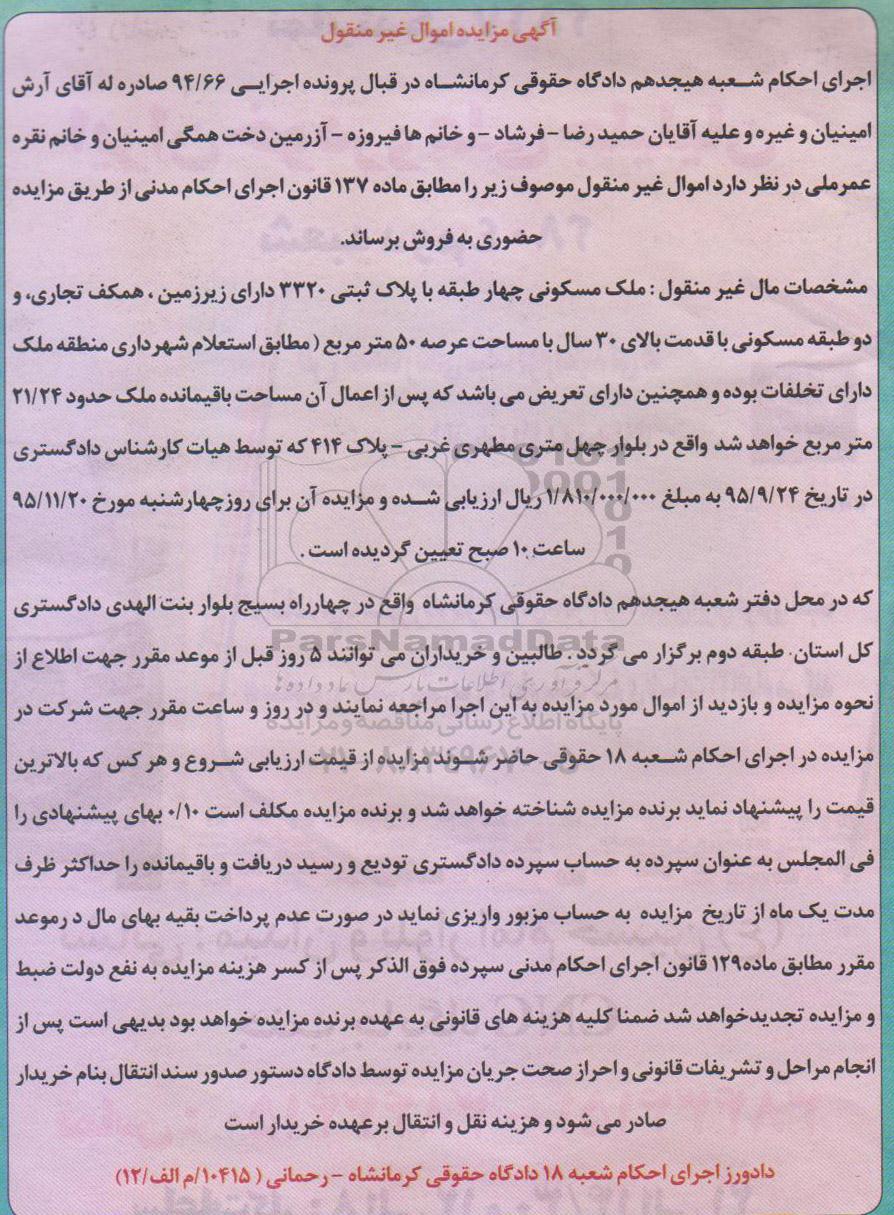 آگهی مزایده اموال غیر منقول
اجرای احکام شعبه هیجدهم دادگاه حقوقی کرمانشاه در قبال پرونده اجرایی ۹۴/۶۶ صادره له آقای آرش
امینیان و غیره و علیه آقایان حمید رضا - فرشاد - و خانم ها فیروزه - آزرمین دخت همگی امینیان و خانم نقره
عمرملی در نظر دارد اموال غیر منقول موصوف زیر را مطابق ماده ۱۳۷ قانون اجرای احکام مدنی از طریق مزایده
حضوری به فروش برساند.
مشخصات مال غیر منقول : ملک مسکونی چهار طبقه با پلاک ثبتی ۳۳۲۰ دارای زیرزمین ، همکف تجاری، و
دو طبقه مسکونی با قدمت بالای ۳۰ سال با مساحت عرصه ۵۰ متر مربع ( مطابق استعلام شهرداری منطقه ملک
دارای تخلفات بوده و همچنین دارای تعریض می باشد که پس از اعمال آن مساحت باقیمانده ملک حدود ۲۱/۲۴
متر مربع خواهد شد واقع در بلوار چهل متری مطهری غربی - پلاک ۴۱۴ که توسط هیات کارشناس دادگستری
در تاریخ ۹۵/۹/۲۴ به مبلغ ۱/۸۱۰/۰۰۰/۰۰۰ ریال ارزیابی شده و مزایده آن برای روز چهارشنبه مورخ ۹۵/۱۱/۲۰
ساعت ۱۰ صبح تعیین گردیده است .
که در محل دفتر شعبه هیجدهم دادگاه حقوقی کرمانشاه واقع در چهارراه بسیج بلوار بنت الهدی دادگستری
کل استان. طبقه دوم برگزار می گردد . طالبین و خریداران می توانند ۵ روز قبل از موعد مقرر جهت اطلاع از
نحوه مزایده و بازدید از اموال مورد مزایده به این اجرا مراجعه نمایند و در روز و ساعت مقرر جهت شرکت در
مزایده در اجرای احکام شعبه ۱۸ حقوقی حاضر شوند مزایده از قیمت ارزیابی شروع و هر کس که بالاترین
قیمت را پیشنهاد نماید برنده مزایده شناخته خواهد شد و برنده مزایده مکلف است ۰/۱۰ بهای پیشنهادی را
فی المجلس به عنوان سپرده به حساب سپرده دادگستری تودیع و رسید دریافت و باقیمانده را حداکثر ظرف
مدت یک ماه از تاریخ مزایده به حساب مزبور واریزی نماید در صورت عدم پرداخت بقیه بهای مال د رموعد
مقرر مطابق ماده۱۲۹ قانون اجرای احکام مدنی سپرده فوق الذکر پس از کسر هزینه مزایده به نفع دولت ضبط
و مزایده تجدیدخواهد شد ضمنا کلیه هزینه های قانونی به عهده برنده مزایده خواهد بود بدیهی است پس از
انجام مراحل و تشریفات قانونی و احراز صحت جریان مزایده توسط دادگاه دستور صدور سند انتقال بنام خریدار
صادر می شود و هزینه نقل و انتقال برعهده خریدار است
دادورز اجرای احکام شعبه ۱۸ دادگاه حقوقی کرمانشاه - رحمانی ( ۱۰۴۱۵/م الف/۱۲)
ParsNamadData
مرکز فرآوری اطلاعات پارس نماد داده ها
پایگاه اطلاع رسانی مناقصه و مزایده